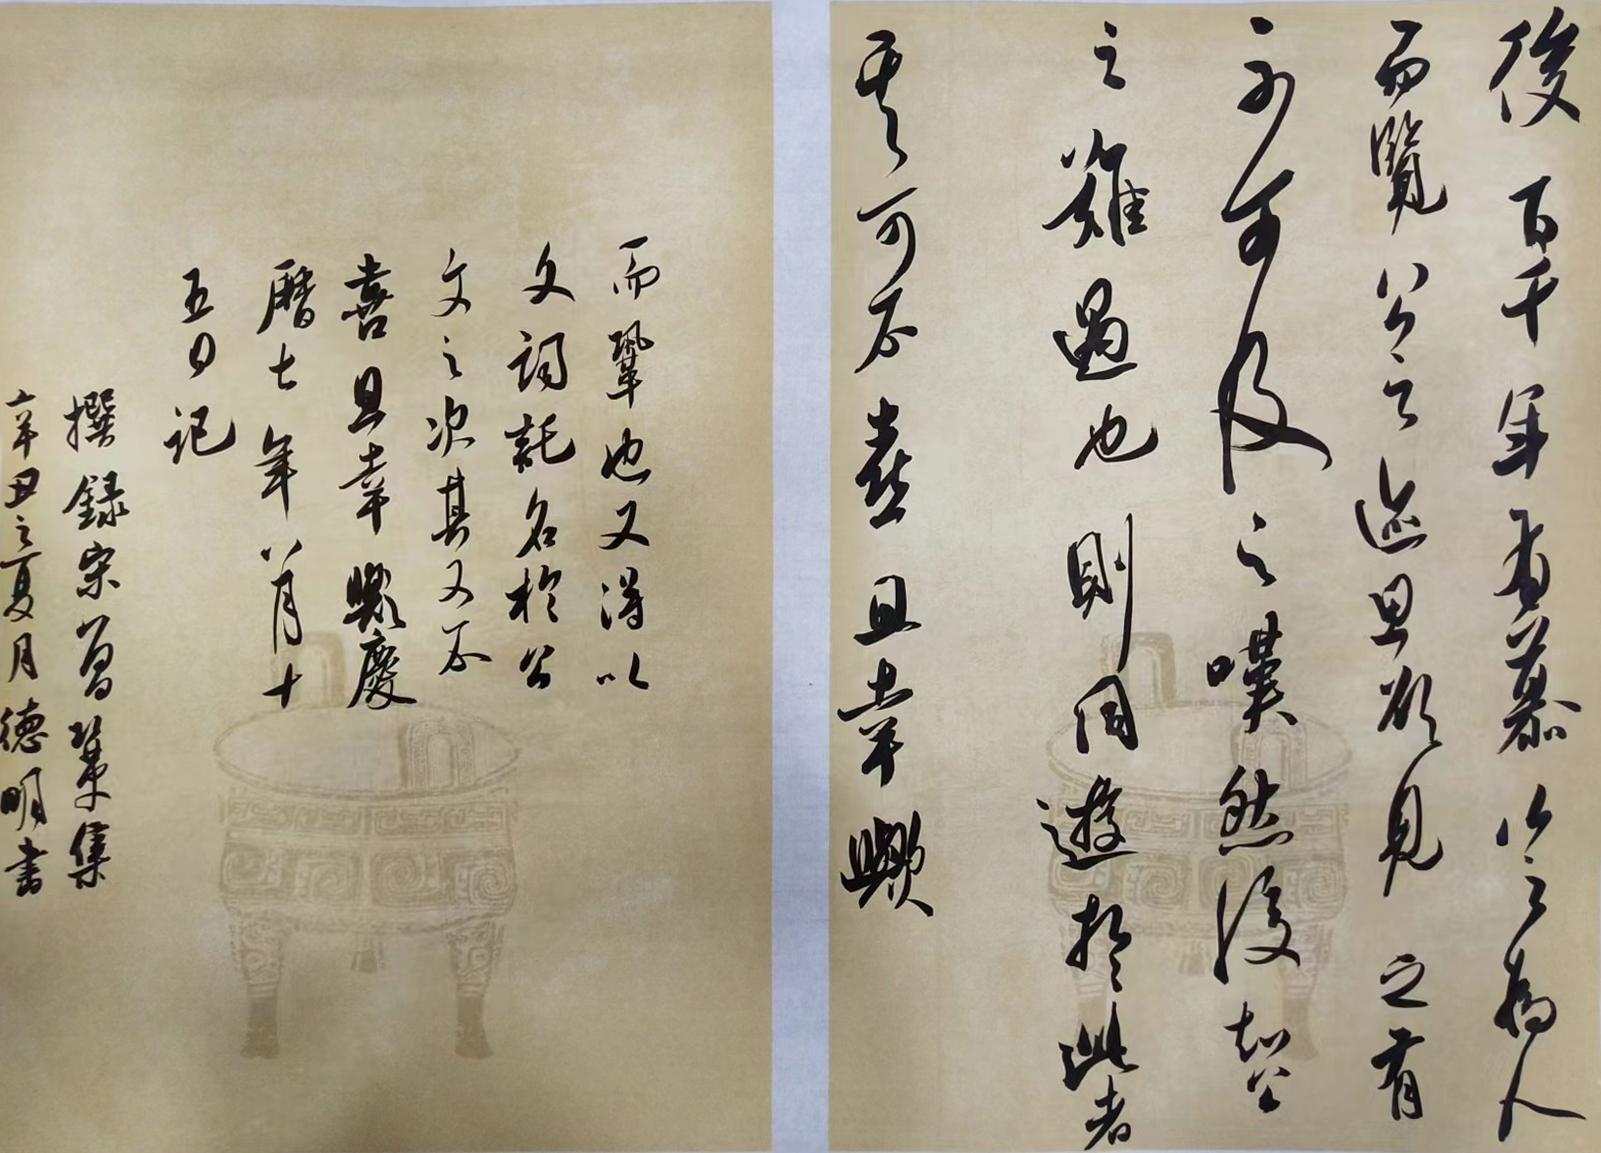 後百千年有慕公之為人
而覽公之迹思欲見之有
不可及之嘆然後知公
之難遇也則同遊於此者
其可不喜且幸歟
而鞏也又得以
文詞託名於公
文之次其又不
喜且幸歟慶
曆七年八月十
五日記
撰録宋曾鞏集
辛丑之夏月德明書